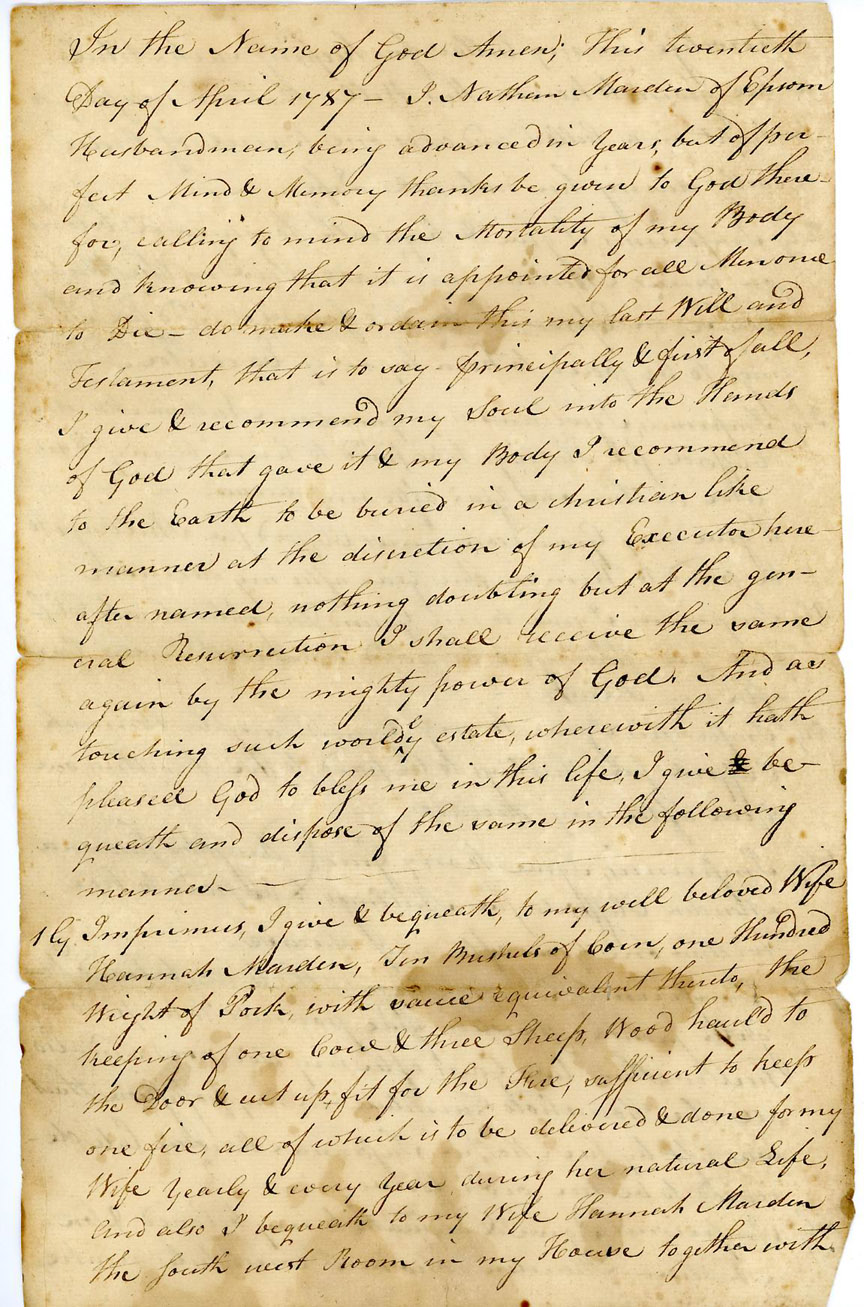 In the Name of God Amen; This twentieth
Day of April 1787 - I. Nathan Marden of Epsom
Husbandman, being advanced in Years, but of per-
fect Mind & Memory thanks be given to God there-
for, calling to mind the Mortality of my Body
and knowing that it is appointed for all Men once
to Die - do make & ordain this my last Will and
Testament, that is to say - principally & first of all,
I give & recommend my Soul into the Hands
of God that gave it & my Body I recommend
to the Earth to be buried in a christian like
manner at the discretion of my Executor here-
after named, nothing doubting but at the gen-
eral Resurrection I shall receive the same
again by the mighty power of God. And as
touching such worldly estate, wherewith it hath
pleased God to bless me in this life, I give & be-
queath and dispose of the same in the following
manner -
1ly Imprimus, I give & bequeath, to my well beloved Wife
Hannah Marden, Ten Bushels of Corn, one Hundred
Wight of Pork, with sauce equivalent thereto, the
keeping of one Cow & three Sheep, Wood haul'd to
the Door & cut up, fit for the Fire, sufficient to keep
one fire, all of which is to be delivered & done for my
Wife Yearly & every Year during her natural Life,
and also I bequeath to my Wife Hannah Marden
the South west Room in my House together with